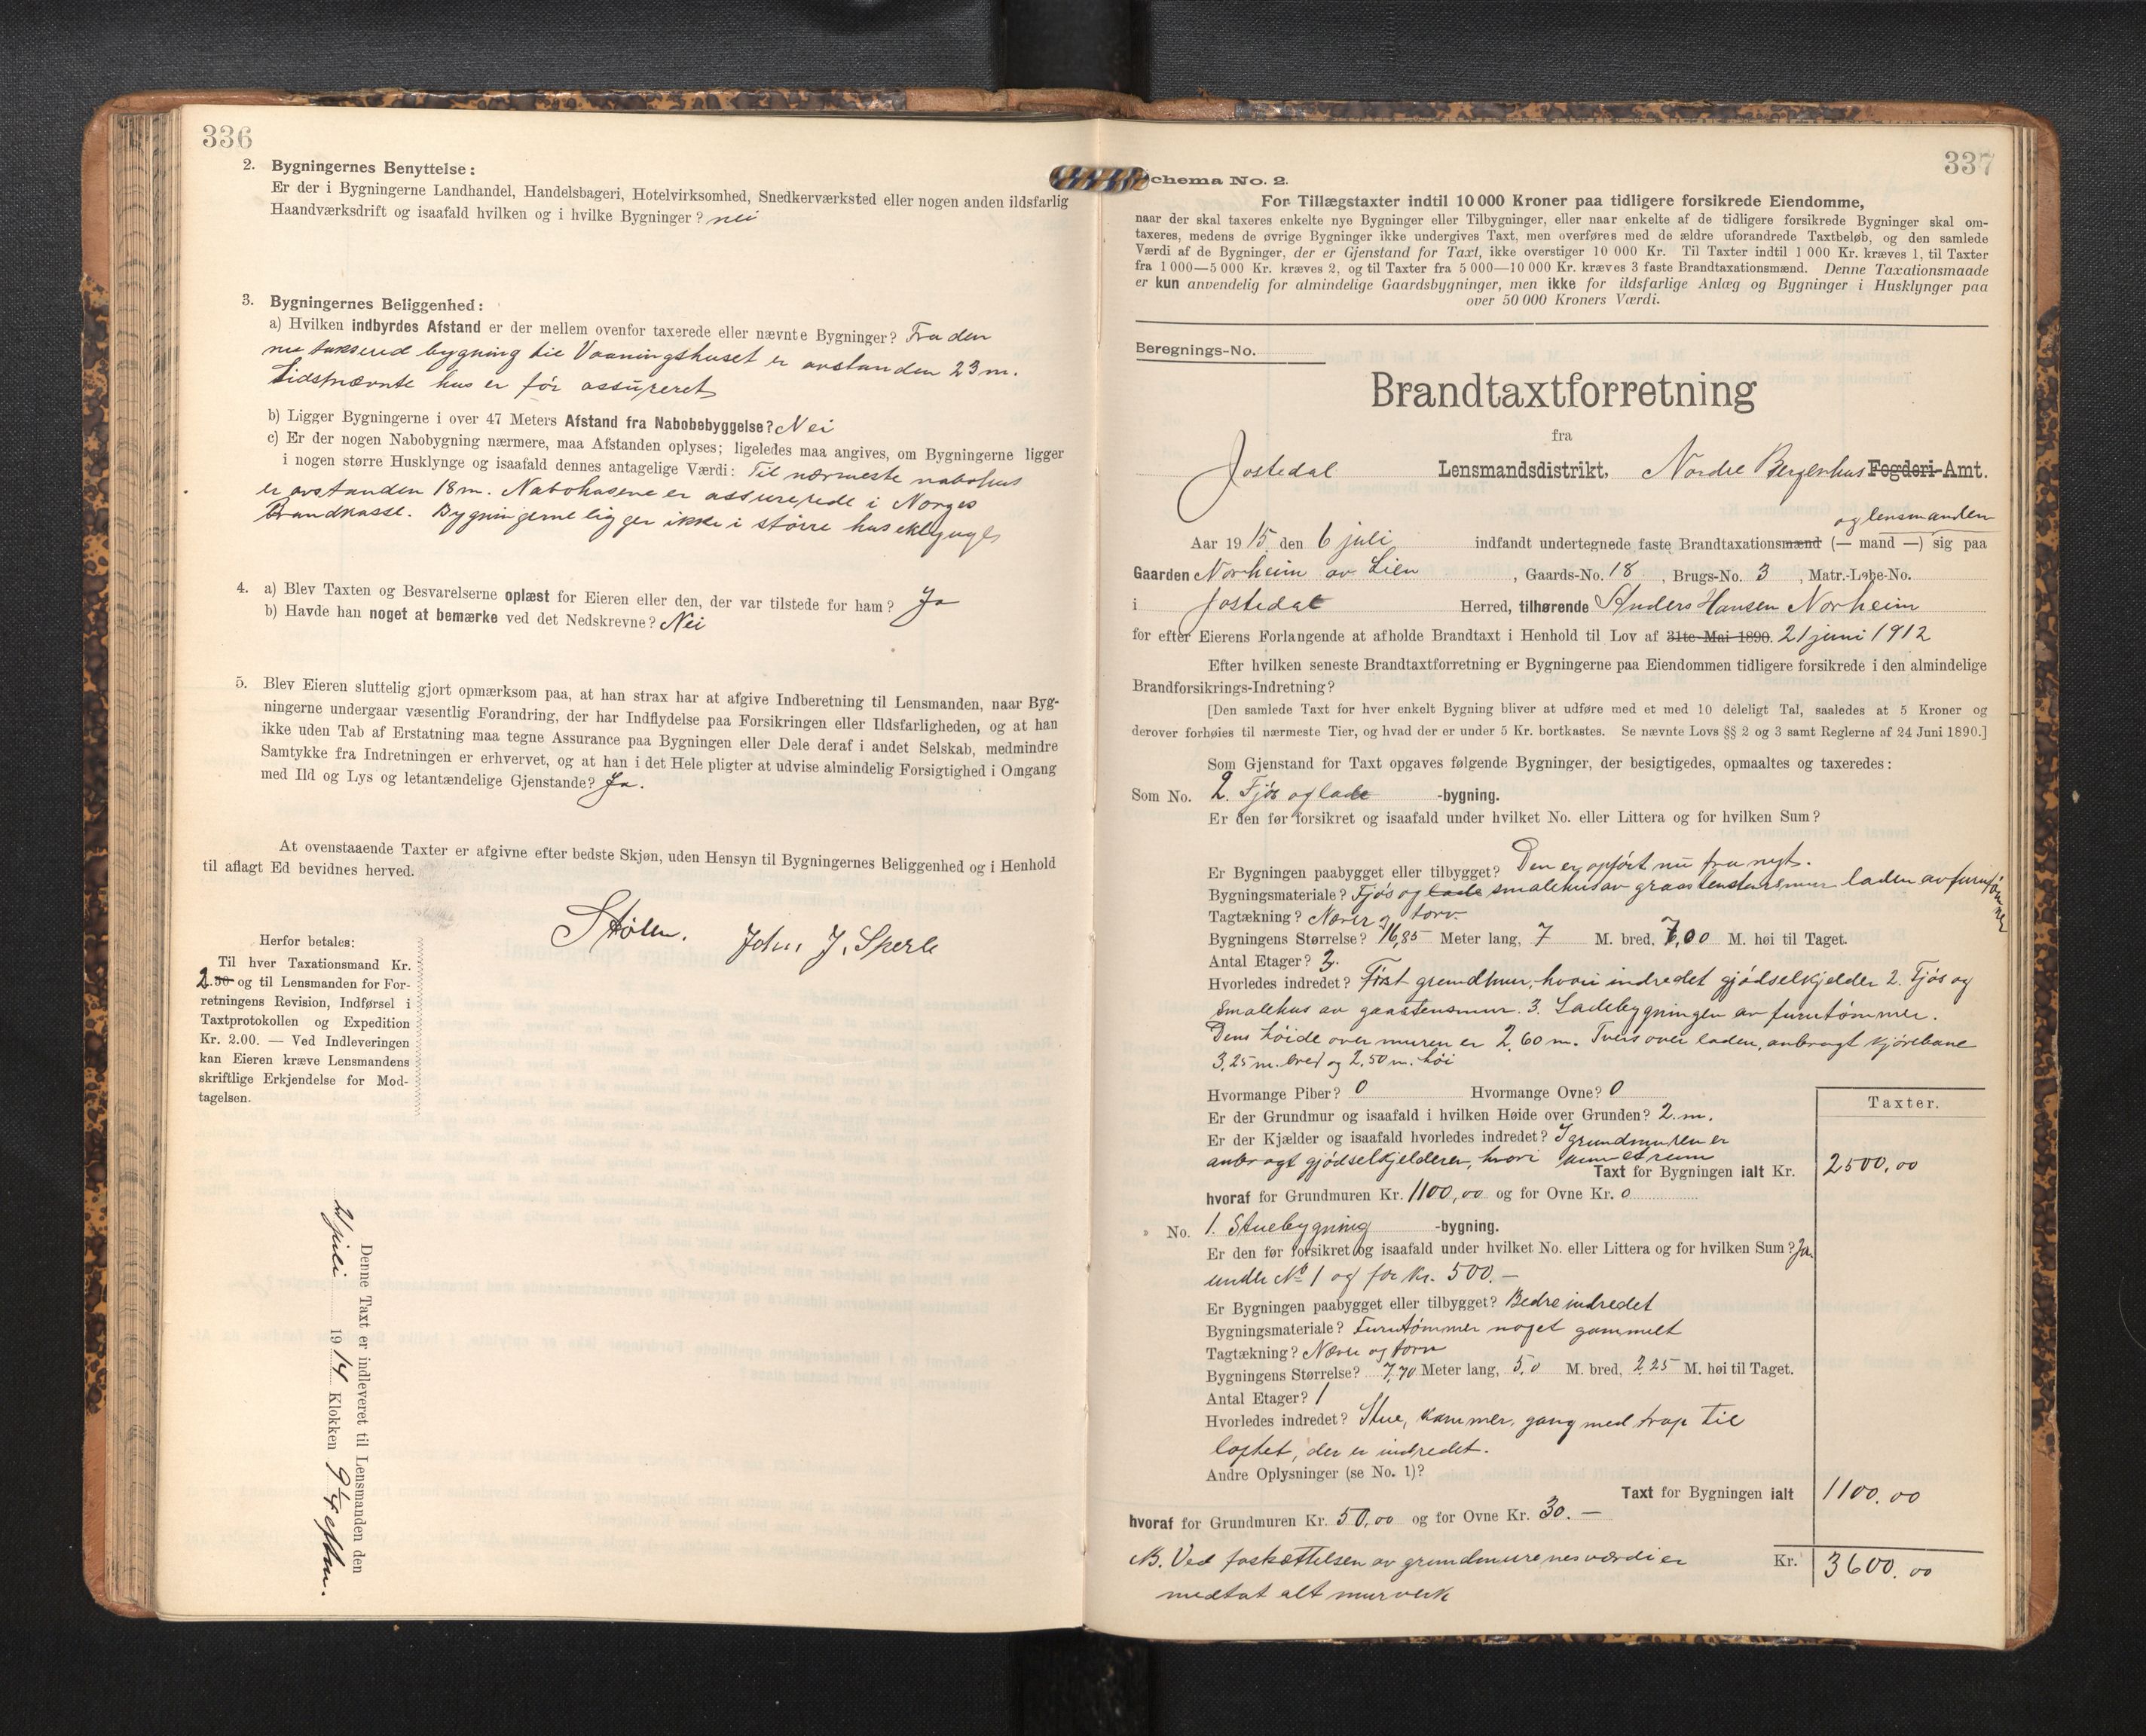 336
2. Bygningernes Benyttelse:
Er der i Bygningerne Landhandel, Handelsbageri, Hotelvirksomhed, Snedkerværksted eller nogen anden ildsfarlig
Haandværksdrift og isaafald hvilken og i hvilke Bygninger? nei
3. Bygningernes Beliggenhed:
a) Hvilken indbyrdes Afstand er der mellem ovenfor taxerede eller nævnte Bygninger? Fra den
nu takserede bygning til Vaaningshuset er avstanden 23 m.
Sidstnævnte hus er før assureret
b) Ligger Bygningerne i over 47 Meters Afstand fra Nabobebyggelse? Nei
c) Er der nogen Nabobygning nærmere, maa Afstanden oplyses; ligeledes maa angives, om Bygningerne ligger
i nogen større Husklynge og isaafald dennes antagelige Værdi: Til nærmeste nabohus
er avstanden 18 m. Nabohusene er assurerede i Norges
Brandkasse. Bygningerne ligger ikke i større huseklynge
4. a) Blev Taxten og Besvarelserne oplæst for Eieren eller den, der var tilstede for ham? Ja
b) Havde han noget at bemærke ved det Nedskrevne? Nei
5. Blev Eieren sluttelig gjort opmærksom paa, at han strax har at afgive Indberetning til Lensmanden, naar Byg-
ningerne undergaar væsentlig Forandring, der har Indflydelse paa Forsikringen eller Ildsfarligheden, og at han
ikke uden Tab af Erstatning maa tegne Assurance paa Bygningen eller Dele deraf i andet Selskab, medmindre
Samtykke fra Indretningen er erhvervet, og at han i det Hele pligter at udvise almindelig Forsigtighed i Omgang
med Ild og Lys og letantændelige Gjenstande? Ja.
At ovenstaaende Taxter er afgivne efter bedste Skjøn, uden Hensyn til Bygningernes Beliggenhed og i Henhold
til aflagt Ed bevidnes herved.
Stølen. John J. Sperle
Herfor betales:
Til hver Taxationsmand Kr.
2.50 og til Lensmanden for For-
retningens Revision, Indførsel i
Taxtprotokollen og Expedition
Kr. 2.00. — Ved Indleveringen
kan Eieren kræve Lensmandens
skriftlige Erkjendelse for Mod-
tagelsen.
Denne Taxt er indleveret til Lensmanden den
juli 1914 Klokken 9 1/4 eftm.
337
Schema No. 2.
For Tillægstaxter indtil 10 000 Kroner paa tidligere forsikrede Eiendomme,
naar der skal taxeres enkelte nye Bygninger eller Tilbygninger, eller naar enkelte af de tidligere forsikrede Bygninger skal om-
taxeres, medens de øvrige Bygninger ikke undergives Taxt, men overføres med de ældre uforandrede Taxtbeløb, og den samlede
Værdi af de Bygninger, der er Gjenstand for Taxt, ikke overstiger 10 000 Kr. Til Taxter indtil 1 000 Kr. kræves 1, til Taxter
fra 1 000—5 000 Kr. kræves 2, og til Taxter fra 5 000—10 000 Kr. kræves 3 faste Brandtaxationsmænd. Denne Taxationsmaade
er kun anvendelig for almindelige Gaardsbygninger, men ikke for ildsfarlige Anlæg og Bygninger i Husklynger paa
over 50 000 Kroners Værdi.
Beregnings-No.
Brandtaxtforretning
fra
Jostedal Lensmandsdistrikt, Nordre Bergenhus Fogderi-Amt.
og lensmanden
Aar 1915 den 6 juli indfandt undertegnede faste Brandtaxationsmænd (— mand —) sig paa
Gaarden Norheim av Lien, Gaards-No. 18, Brugs-No. 3, Matr.-Løbe-No.
i Jostedal Herred, tilhørende Anders Hansen Norheim
for efter Eierens Forlangende at afholde Brandtaxt i Henhold til Lov af 31te Mai 1890. 21 juni 1912
Efter hvilken seneste Brandtaxtforretning er Bygningerne paa Eiendommen tidligere forsikrede i den almindelige
Brandforsikrings-Indretning?
[Den samlede Taxt for hver enkelt Bygning bliver at udføre med et med 10 deleligt Tal, saaledes at 5 Kroner og
derover forhøies til nærmeste Tier, og hvad der er under 5 Kr. bortkastes. Se nævnte Lovs §§ 2 og 3 samt Reglerne af 24 Juni 1890.]
Som Gjenstand for Taxt opgaves følgende Bygninger, der besigtigedes, opmaaltes og taxeredes:
Som No. 2. Fjøs og lade -bygning.
Er den før forsikret og isaafald under hvilket No. eller Littera og for hvilken Sum?
Er Bygningen paabygget eller tilbygget? Den er opført nu fra nyt.
Bygningsmateriale? Fjøs og lade smalehus av graastensmur laden av furutømmer
Tagtækning? Næver og torv
Bygningens Størrelse? 16,85 Meter lang, 7 M. bred, 7,00 M. høi til Taget.
Antal Etager? 3.
Hvorledes indredet? Først grundmur, hvori indredet gjødselkjelder 2. Fjøs og
smalehus av gaastensmur. 3. Ladebygningen av furutømmer.
Dens høide over muren er 2,60 m. Tvers over laden, anbragt kjørebane
3,25 m. bred og 2,50 m. høi
Hvormange Piber? 0 Hvormange Ovne? 0
Er der Grundmur og isaafald i hvilken Høide over Grunden? 2 m.
Er der Kjælder og isaafald hvorledes indredet? I grundmuren er
anbragt gjødselkjelderen, hvori kun et rum
Taxter.
Taxt for Bygningen ialt Kr. 2500,00
hvoraf for Grundmuren Kr. 1100,00 og for Ovne Kr. 0
» No. 1. Stuebygning -bygning.
Er den før forsikret og isaafald under hvilket No. eller Littera og for hvilken Sum? Ja.
under No 1 og for kr. 500.—
Er Bygningen paabygget eller tilbygget? Bedre indredet
Bygningsmateriale? Furutømmer noget gammelt
Tagtækning? Næver og torv
Bygningens Størrelse? 7,70 Meter lang, 5,0 M. bred, 2,25 M. høi til Taget.
Antal Etager? 1
Hvorledes indredet? Stue, kammer, gang med trap til
loftet, der er indredet.
Andre Oplysninger (se No. 1)?
Taxt for Bygningen ialt 1100,00
hvoraf for Grundmuren Kr. 50,00 og for Ovne Kr. 30.—
NB. Ved fastsættelsen av grundmurenes værdi er
medtat alt murverk
Kr. 3600,00